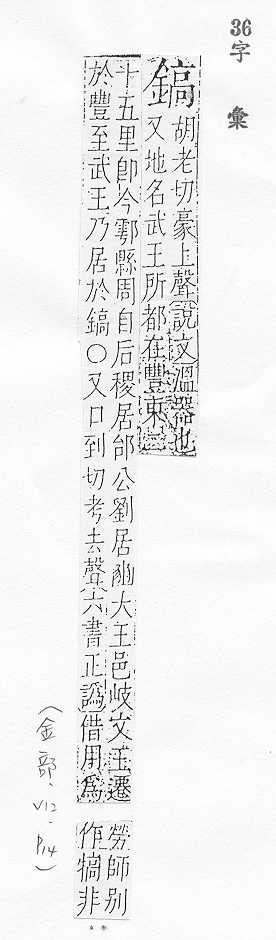 36
字彙
鎬 胡老切豪上聲說文溫器也
又地名武王所都在豐東二
十五里卽今鄠縣周自后稷居邰公劉居豳大王邑岐文王遷
於豐至武王乃居於鎬〇又口到切考去聲六書正譌借用為
勞師別
作犒非
(金部.V12.P14)